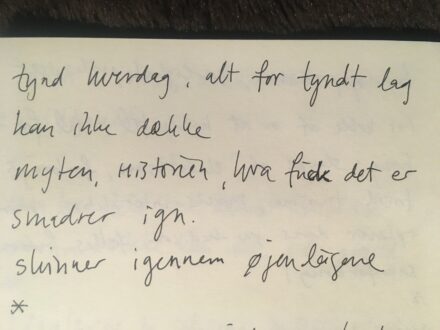 tynd hverdag, alt for tyndt lag
kan ikke dække
myten, HiSTORiEN, hva fuck det er
smadrer ign.
skinner igennem øjenlågene
*